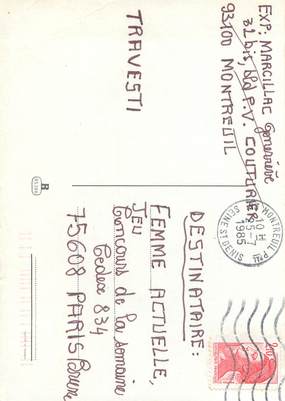 EXP: MARCILLAC Geneviève
32 bis, Bld P.V. COUTURIER
93100 MONTREUIL
TRAVESTI
MONTREUIL PPAL
10 H
25-7
1985
SEINE ST DENIS
DESTINATAIRE:
FEMME ACTUELLE,
JEU
Concours de la semaine
Cedex 834
75608 PARIS Brune